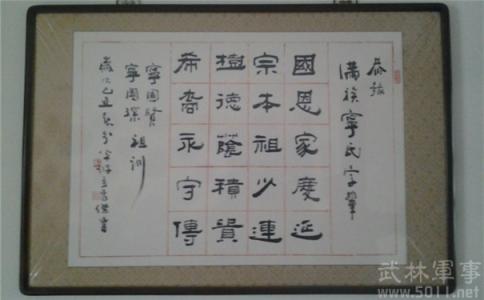 恭錄
滿族寧氏字輩
國恩家度延
宗本祖少連
樹德蔭積貴
希裔永守傳
寧國賢
寧國琛 祖訓
歲次己丑
書
武林軍事
www.5011.net